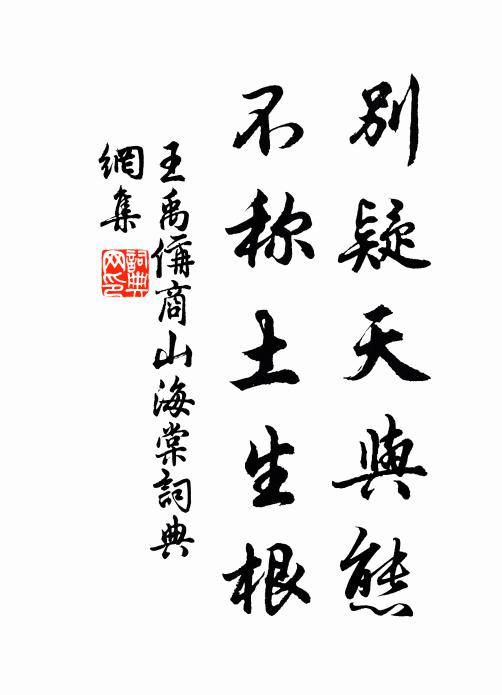 別疑天與態
不称土生根
王禹偁商山海棠詞典
網集
詞典網印